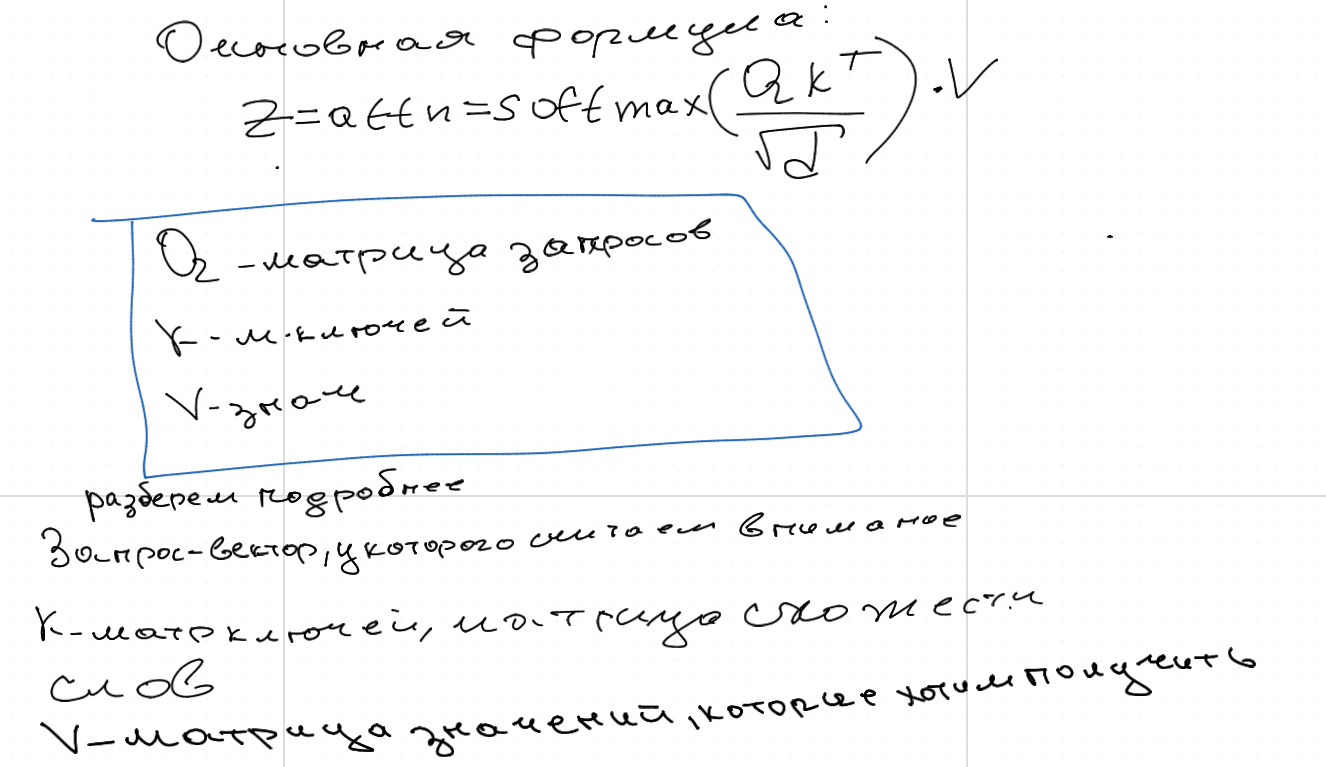 Основная формула:
Z=attn=softmax(QK^T/√d)·V
Q-матрица запросов
K-м.ключей
V-знач
разберем подробнее
Запрос-вектор, у которого считаем внимание
K-матр ключей, матрица схожести
слов
V-матрица значений, которые хотим получить